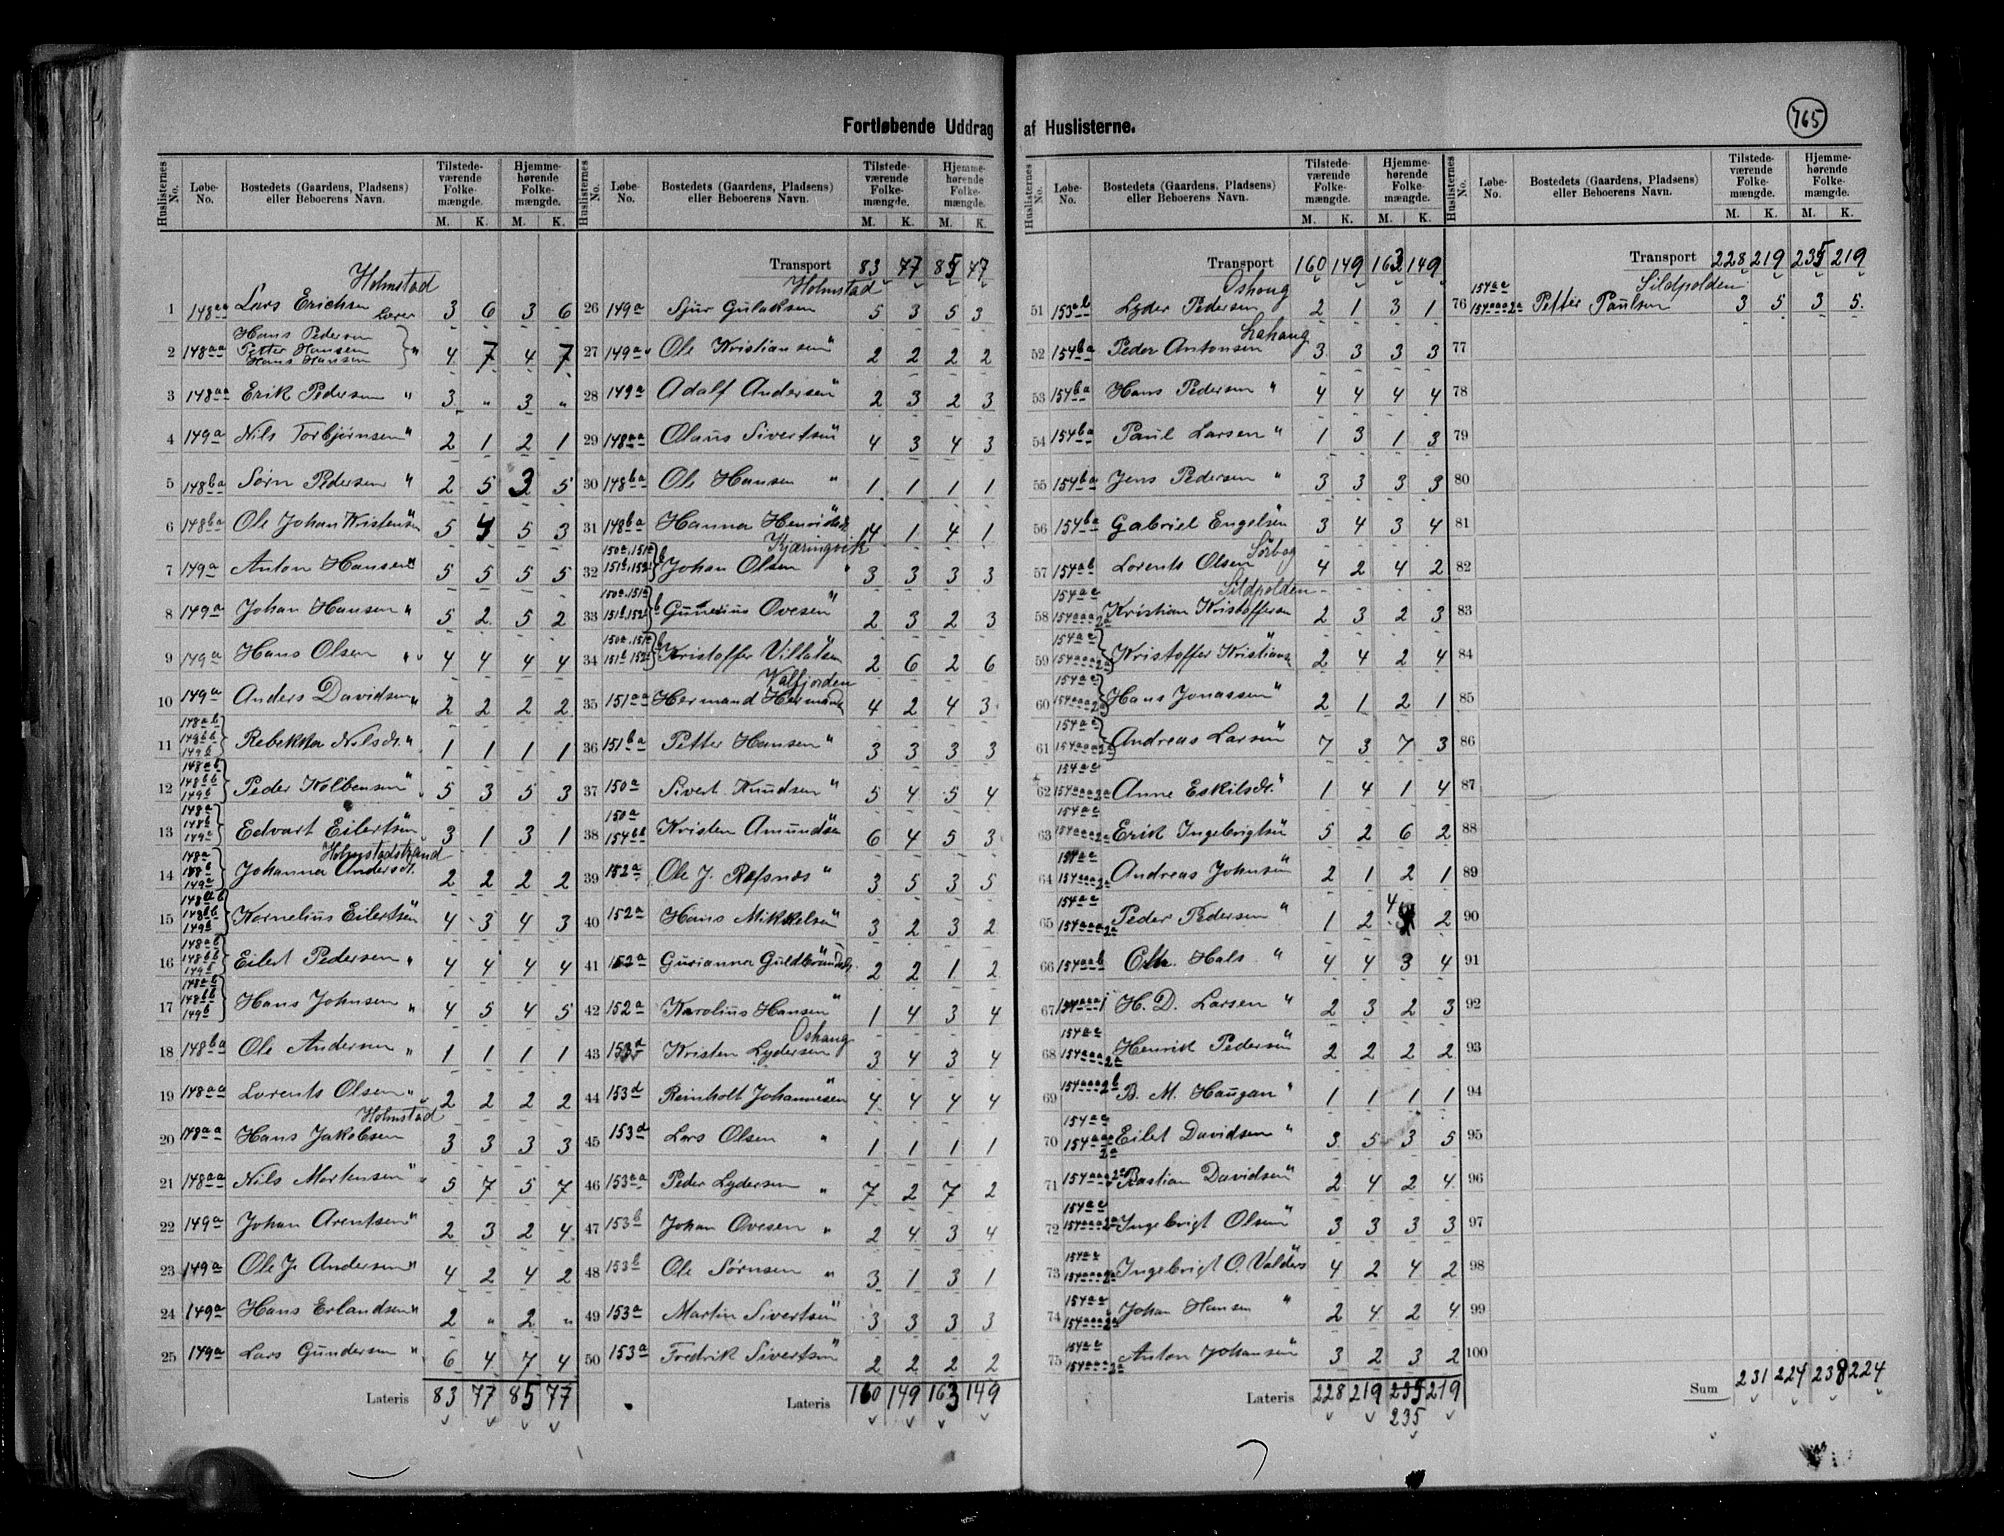 765
Fortløbende Uddrag af Huslisterne.
Huslisternes No. | Løbe-No. | Bostedets (Gaardens, Pladsens) eller Beboerens Navn. | Tilstedeværende Folkemængde. M. K. | Hjemmehørende Folkemængde. M. K.
Holmstad
1 148aa Lars Erichsen Lærer 3 6 3 6
2 148aa Hans Pedersen
Petter Hansen
Hans Hansen " 4 7 4 7
3 148aa Erik Pedersen " 3 " 3 "
4 149a Nils Torbjørnsen " 2 1 2 1
5 148ba Sørn Pedersen " 2 5 3 5
6 148ba Ole Johan Kristensen 5 5 3
7 149a Anton Hansen " 5 5 5 5
8 149a Johan Hansen " 5 2 5 2
9 149a Hans Olsen " 4 4 4 4
10 149a Anders Davidsen " 2 2 2 2
11 148ab 148bb 149b Rebekka Nilsdr. " 1 1 1 1
12 148ab 148bb 149b Peder Kolbensen " 5 3 5 3
13 148a 148b 149a Edvart Eilertsen " 3 1 3 1
Holmstadstrand
14 148a 148b 149a Johanna Andersdr. 2 2 2 2
15 148ab 148bb 149b Kornelius Eilertsen 4 3 4 3
16 148ab 148bb 149b Eilert Pedersen " 4 4 4 4
17 148ab 148bb 149b Hans Johnsen " 4 5 4 5
18 148ba Ole Andersen " 1 1 1 1
19 148aa Lorents Olsen " 2 2 2 2
Holmstad
20 148aa Hans Jakobsen 3 3 3 3
21 148aa Nils Mortensen " 5 7 5 7
22 149a Johan Arentsen " 2 3 2 4
23 149a Ole J. Andersen " 4 2 4 2
24 149a Hans Erlandsen " 2 " 2 "
25 149a Lars Gundersen " 6 4 7 4
Lateris 83 77 85 77
Huslisternes No. | Løbe-No. | Bostedets (Gaardens, Pladsens) eller Beboerens Navn. | Tilstedeværende Folkemængde. M. K. | Hjemmehørende Folkemængde. M. K.
Transport 83 77 85 77
Holmstad
26 149a Sjur Gulaksen 5 3 5 3
27 149a Ole Kristiansen " 2 2 2 2
28 149a Adolf Andersen " 2 3 2 3
29 148aa Olaus Sivertsen " 4 3 4 3
30 148ba Ole Hansen " 1 1 1 1
31 148ba Hanna Henriksdr. 4 1 4 1
Kjæringvik
32 150a.151a 151b.152b Johan Olsen " 3 3 3 3
33 150a.151a 151b.152b Gunerius Ovesen " 2 3 2 3
34 150a.151a 151b.152b Kristoffer Villatsen 2 6 2 6
Valfjorden
35 151aa Hermand Hermands 4 2 4 3
36 151ba Petter Hansen " 3 3 3 3
37 150a Sivert Knudsen " 5 4 5 4
38 150a 154bb Kristen Amundsen 6 4 5 3
39 152a Ole J. Rafsnæs " 3 5 3 5
40 152a Hans Mikkelsen " 3 2 3 2
41 152a Gurianna Guldbrandsdr. 2 2 1 2
42 152a Karolius Hansen " 1 4 3 4
Oshaug
43 153d Kristen Lydersen 3 4 3 4
44 153d Reinholt Johannesen " 4 4 4 4
45 153d Lars Olsen " 1 1 1 1
46 153aa Peder Lydersen " 7 2 7 2
47 153b Johan Ovesen " 2 4 3 4
48 153b Ole Sørnsen " 3 1 3 1
49 153a Martin Sivertsen " 3 3 3 3
50 153a Fredrik Sivertsen " 2 2 2 2
Lateris 160 149 163 149
Huslisternes No. | Løbe-No. | Bostedets (Gaardens, Pladsens) eller Beboerens Navn. | Tilstedeværende Folkemængde. M. K. | Hjemmehørende Folkemængde. M. K.
Transport 160 149 163 149
Oshaug
51 153ab Lyder Pedersen 2 1 3 1
52 154ba Peder Antonsen 3 3 3 3
53 154ba Hans Pedersen " 4 4 4 4
54 154ba Paul Larsen " 1 3 1 3
55 154ba Jens Pedersen " 3 3 3 3
56 154ba Gabriel Engelsen 3 4 3 4
Sørbog
57 154ab Lorents Olsen 4 2 4 2
Sildpolden
58 154ae 154aaa2a Kristian Kristoffersen 2 3 2 3
59 154ae 154aaa2a Kristoffer Kristians 2 4 2 4
60 154ae 154aaa2a Hans Jonassen " 2 1 2 1
61 154ae 154aaa2a Andreas Larsen " 7 3 7 3
62 154ae 154aaa2a Anne Eskilsdr. " 1 4 1 4
63 154ae 154aaa2a Erik Ingebrigtsen 5 2 6 2
64 154ae 154aaa2a Andreas Johnsen " 2 1 2 1
65 154ae 154aaa2a Peder Pedersen " 1 2 4 2
66 154aab Chr. Hals " 4 4 3 4
67 H. D. Larsen " 2 3 2 3
68 154ae 154aaa2a Henrik Pedersen " 2 2 2 2
69 154aaa2b B. M. Haugan " 1 1 1 1
70 154ae 154aaa 2a Eilet Davidsen " 3 5 3 5
71 154aaa2a Bastian Davidsen " 2 4 2 4
72 154ae 154aaa2a Ingebrigt Olsen " 3 3 3 3
73 154ae 154aaa2a Ingebrigt O. Valders 4 2 4 2
74 154ae 154aaa2a Johan Hansen " 2 4 2 4
75 154ae 154aaa2a Anton Johansen " 3 2 3 2
Lateris 228 219 235 219
235
Huslisternes No. | Løbe-No. | Bostedets (Gaardens, Pladsens) eller Beboerens Navn. | Tilstedeværende Folkemængde. M. K. | Hjemmehørende Folkemængde. M. K.
Transport 228 219 235 219
Sildpolden
76 154ae 154aaa2a Petter Paulsen 3 5 3 5
77
78
79
80
81
82
83
84
85
86
87
88
89
90
91
92
93
94
95
96
97
98
99
100
Sum 231 224 238 224